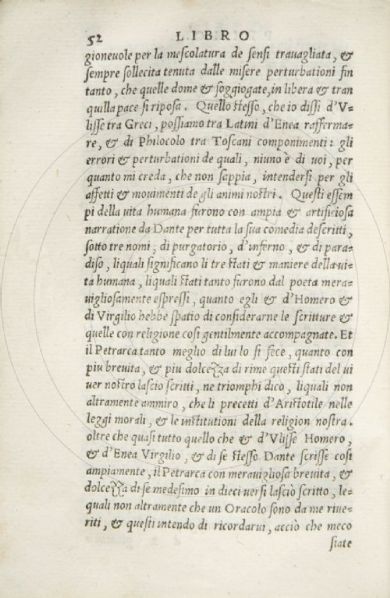 52 LIBRO
gioneuole per la mescolatura de sensi trauagliata, &
sempre sollecita tenuta dalle misere perturbationi fin
tanto, che quelle dome & soggiogate, in libera & tran
quilla pace si riposa. Quello stesso, che io dissi d'V-
lisse tra Greci, possiamo tra Latini d'Enea rafferma-
re, & di Philocolo tra Toscani componimenti: gli
errori & perturbationi de quali, niuno è di uoi, per
quanto mi creda, che non sappia, intendersi per gli
affetti & mouimenti de gli animi nostri. Questi essem
pi della uita humana furono con ampia & artificiosa
narratione da Dante per tutta la sua comedia descritti,
sotto tre nomi, di purgatorio, d'inferno, & di para-
diso, liquali significano li tre stati & maniere della ui-
ta humana, liquali stati tanto furono dal poeta mera-
uigliosamente espressi, quanto egli & d'Homero &
di Virgilio hebbe spatio di considerarne le scritture &
quelle con religione cosi gentilmente accompagnate. Et
il Petrarca tanto meglio di lui lo si fece, quanto con
piu breuita, & piu dolcezza di rime questi stati del ui
uer nostro lascio scritti, ne triomphi dico, liquali non
altramente ammiro, che li precetti d'Aristotile nelle
leggi morali, & le institutioni della religion nostra.
oltre che quasi tutto quello che & d'Vlisse Homero,
& d'Enea Virgilio, & di se stesso Dante scrisse cosi
ampiamente, il Petrarca con merauigliosa breuita, &
dolcezza di se medesimo in dieci uersi lasciò scritto, le-
quali non altramente che un Oracolo sono da me riue-
riti, & questi intendo di ricordarui, acciò che meco
siate